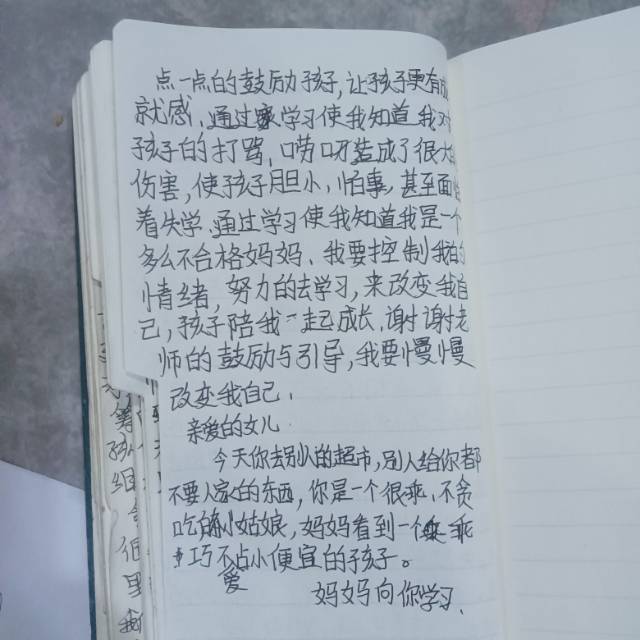 点一点的鼓励孩子,让孩子更有成
就感,通过学习使我知道我对
孩子的打骂,唠叨造成了很大的
伤害,使孩子胆小,怕事,甚至面临
着失学.通过学习使我知道我是一个
多么不合格妈妈、我要控制我的
情绪,努力的去学习,来改变我自
己,孩子陪我一起成长.谢谢老
师的鼓励与引导,我要慢慢
改变我自己.
亲爱的女儿.
今天你去别人的超市,别人给你都
不要人家的东西,你是一个很乖、不贪
吃的小姑娘,妈妈看到一个乖
巧不爱占小便宜的孩子。
妈妈向你学习.
孩
组
但
里
我